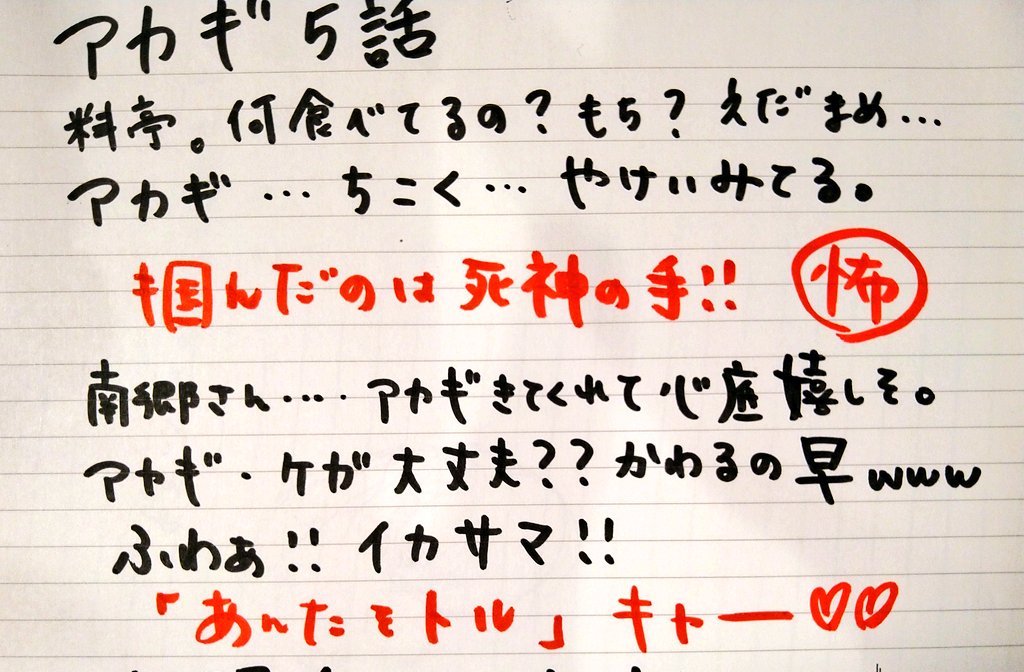 アカギ5話
料亭。何食べてるの?もち?えだまめ…
アカギ…ちこく…やけいみてる。
掴んだのは死神の手!! 怖
南郷さん….アカギきてくれて心底嬉しそ。
アカギ・ケガ大丈夫??かわるの早www
ふわぁ!!イカサマ!!
「あんたそトル」キャー♡♡